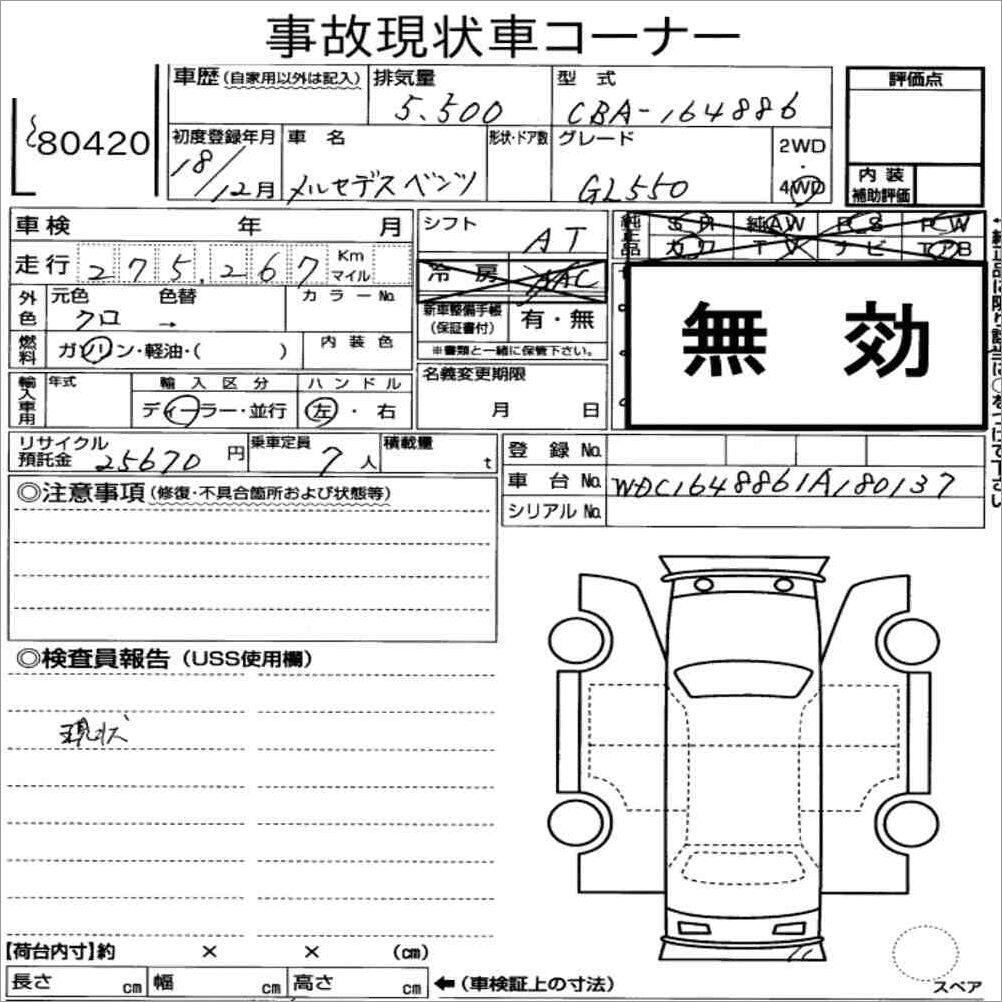 事故現状車コーナー
80420
車歴 (自家用以外は記入)
排気量
5.500
型式
CBA-164886
評価点
初度登録年月
18/12月
車名
メルセデスベンツ
形状・ドア数
グレード
GL550
2WD
・
4WD
内装
補助評価
車検 年 月
シフト
AT
純正品
SR 純AW PS PW
カワ TV ナビ
走行 275,267 Km マイル
冷房 AAC
外色
元色 色替 カラーNo.
クロ →
新車整備手帳
(保証書付)
有・無
※書類と一緒に保管下さい。
無効
燃料
ガソリン・軽油・( )
内装色
輸入車用
年式
輸入区分
ディーラー・並行
ハンドル
左・右
名義変更期限
月 日
リサイクル
預託金 25670円
乗車定員
7人
積載量
t
登録No.
車台No. WDC1648861A180137
シリアルNo.
◎注意事項 (修復・不具合箇所および状態等)
◎検査員報告 (USS使用欄)
現状
【荷台内寸】約 × × (cm)
長さ cm 幅 cm 高さ cm ←(車検証上の寸法)
スペア